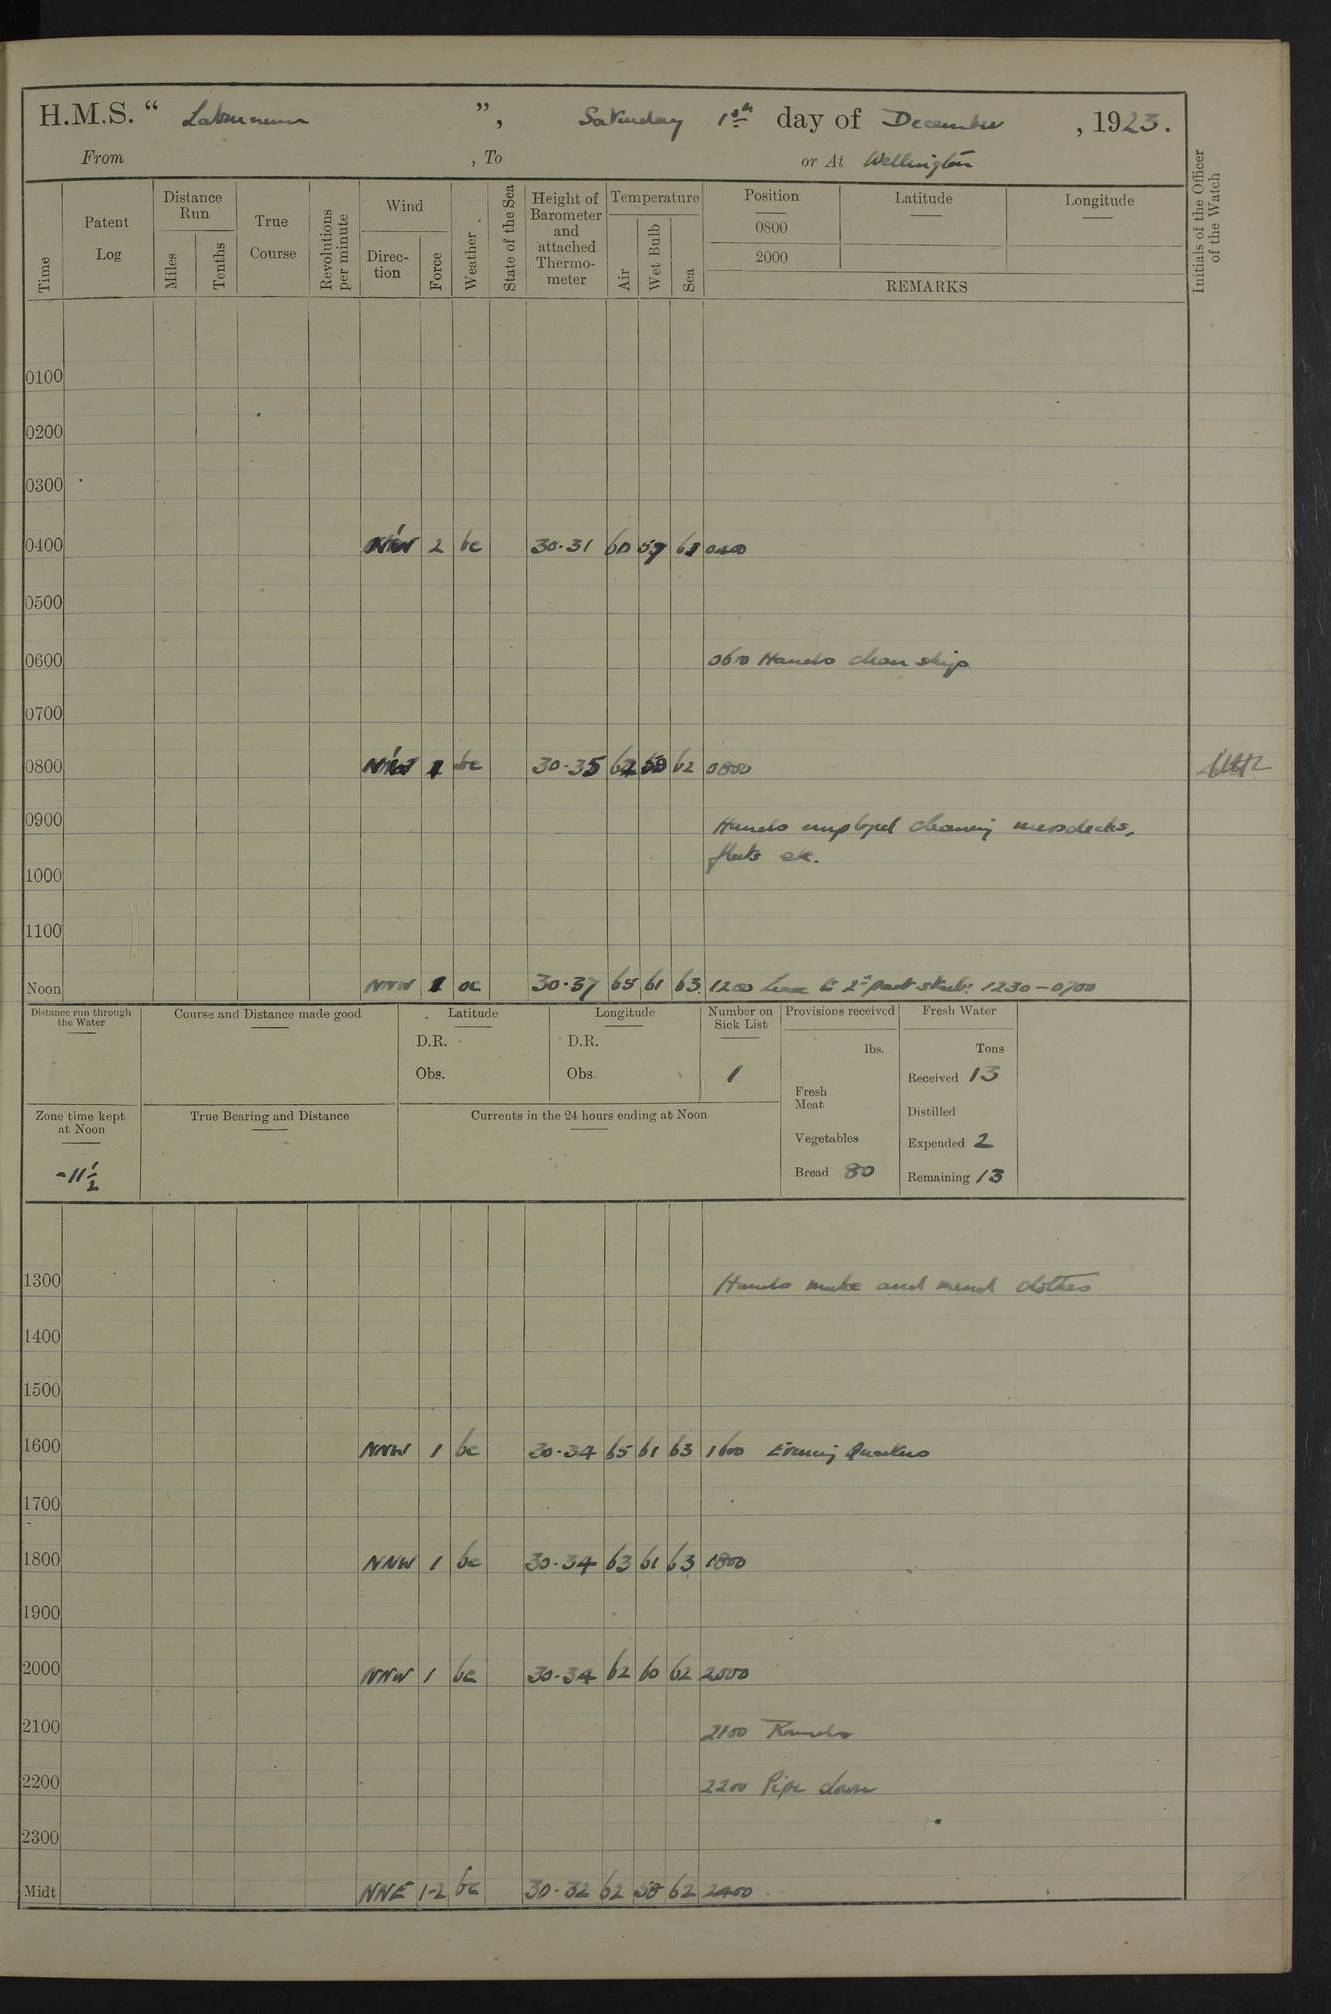 H.M.S. “ Laburnum ”, Saturday 1st day of December, 1923.
From , To or At Wellington
Time
Patent Log
Distance Run
Miles
Tenths
True Course
Revolutions per minute
Wind
Direction
Force
Weather
State of the Sea
Height of Barometer and attached Thermometer
Temperature
Air
Wet Bulb
Sea
Position
0800
2000
Latitude
Longitude
REMARKS
Initials of the Officer of the Watch
0100
0200
0300
0400 2 bc 30.31 60 57 0400
0500
0600 0600 Hands clean ship
0700
0800 1 bc 30.35 62 0800
0900 Hands employed cleaning messdecks,
flats etc.
1000
1100
Noon NNW 1 bc 30.37 65 61 63 1200 Leave to 1st part 1230-0700
Distance run through the Water
Course and Distance made good
Latitude
D.R.
Obs.
Longitude
D.R.
Obs.
Number on Sick List
1
Provisions received
lbs.
Fresh Meat
Vegetables
Bread 80
Fresh Water
Tons
Received 13
Distilled
Expended 2
Remaining 13
Zone time kept at Noon
-11½
True Bearing and Distance
Currents in the 24 hours ending at Noon
1300 Hands make and mend clothes
1400
1500
1600 NNW 1 bc 30.34 65 61 63 1600 Evening Quarters
1700
1800 NNW 1 bc 30.34 63 61 63 1800
1900
2000 NNW 1 bc 30.34 62 60 62 2000
2100 2100 Rounds
2200 2200 Pipe down
2300
Midt NNE 1-2 bc 30.32 62 58 62 2400